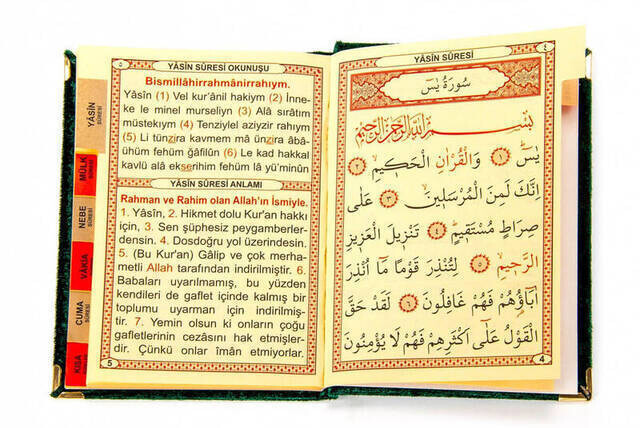 YÂSİN SÛRESİ ٤
سُورَةُ يٰسٓ
بِسْمِ اللّٰهِ الرَّحْمٰنِ الرَّحِيمِ
يٰسٓ ﴿١﴾ وَالْقُرْاٰنِ الْحَكِيمِ ﴿٢﴾
اِنَّكَ لَمِنَ الْمُرْسَلِينَ ﴿٣﴾ عَلٰى
صِرَاطٍ مُسْتَقِيمٍ ﴿٤﴾ تَنْزِيلَ الْعَزِيزِ
الرَّحِيمِ ﴿٥﴾ لِتُنْذِرَ قَوْمًا مَٓا اُنْذِرَ
اٰبَٓاؤُ۬هُمْ فَهُمْ غَافِلُونَ ﴿٦﴾ لَقَدْ حَقَّ
الْقَوْلُ عَلٰٓى اَكْثَرِهِمْ فَهُمْ لَا يُؤْمِنُونَ
4
٥ YÂSİN SÛRESİ OKUNUŞU
Bismillâhirrahmânirrahıym.
Yâsîn (1) Vel kur'ânil hakiym (2) İnne-
ke le minel murseliyn (3) Alâ sırâtım
müstekıym (4) Tenziylel aziyzir rahıym
(5) Li tünzira kavmem mâ ünzira âbâ-
ühüm fehüm ğâfilûn (6) Le kad hakkal
kavlü alâ ekserihim fehüm lâ yü'minûn
YÂSİN SÛRESİ ANLAMI
Rahman ve Rahim olan Allah'ın İsmiyle.
1. Yâsîn, 2. Hikmet dolu Kur'an hakkı
için, 3. Sen şüphesiz peygamberler-
densin. 4. Dosdoğru yol üzerindesin.
5. (Bu Kur'an) Gâlip ve çok merha-
metli Allah tarafından indirilmiştir. 6.
Babaları uyarılmamış, bu yüzden
kendileri de gaflet içinde kalmış bir
toplumu uyarman için indirilmiş-
tir. 7. Yemin olsun ki onların çoğu
gafletlerinin cezasını hak etmişler-
dir. Çünkü onlar îmân etmiyorlar.
5
YÂSİN
SÛRESİ
MÜLK
SÛRESİ
NEBE
SÛRESİ
VÂKIA
CUMA
SÛRESİ
KISA